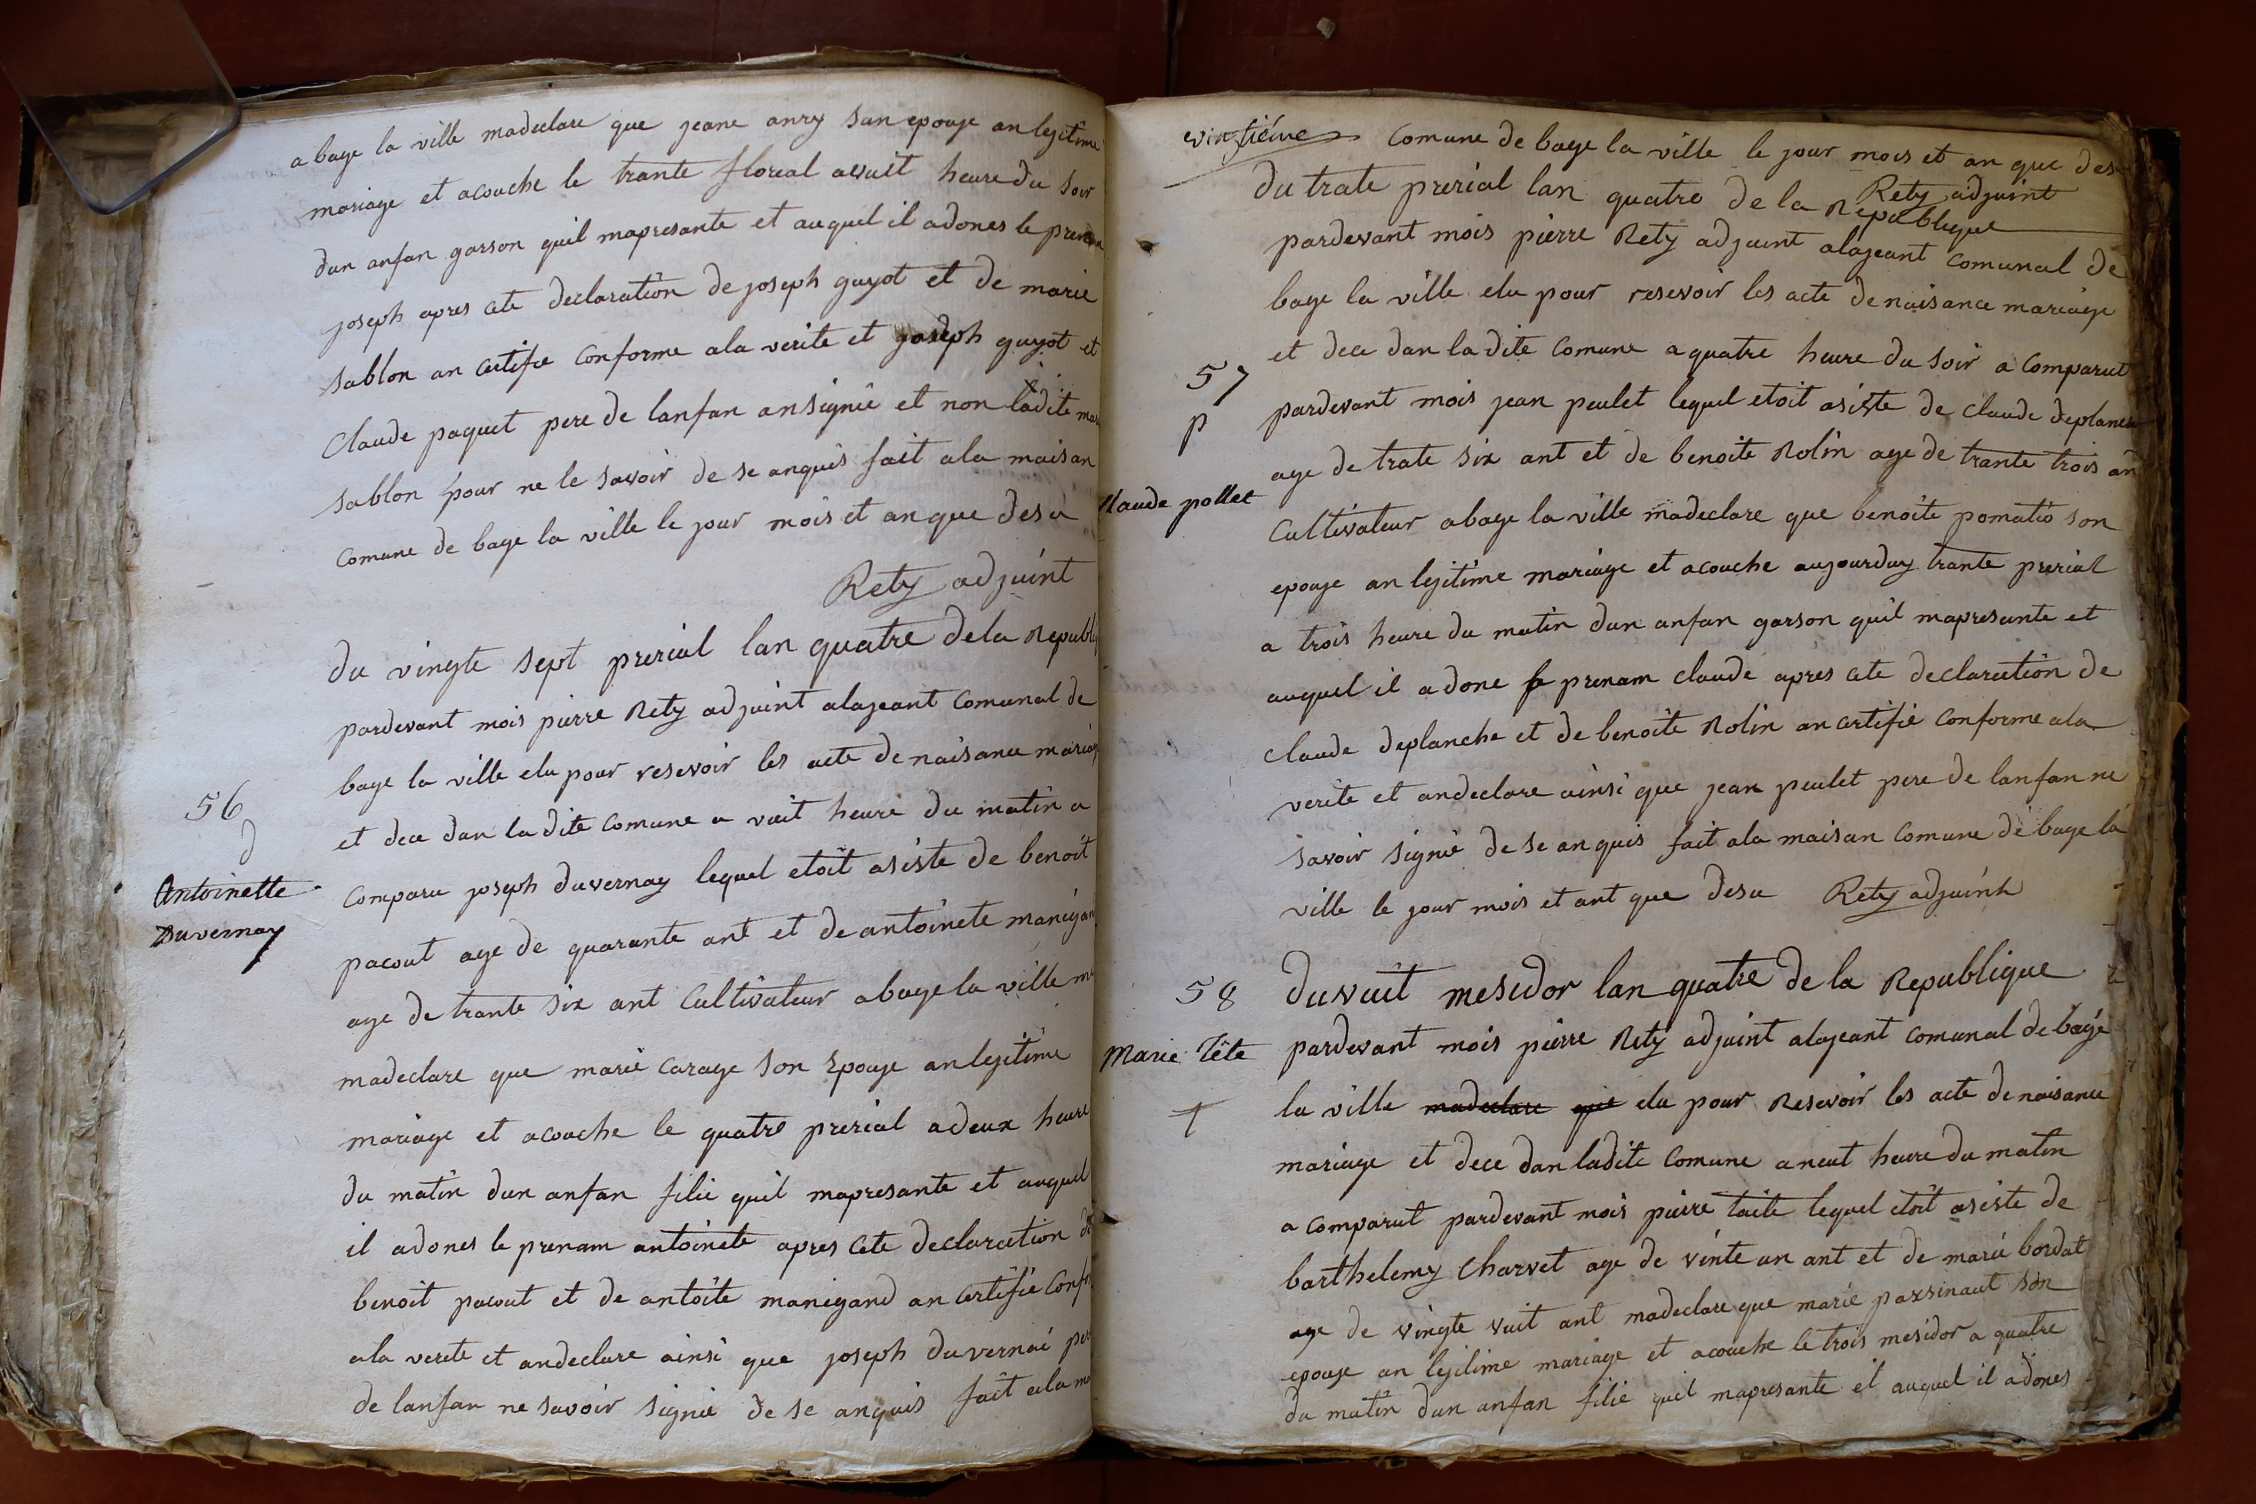 a bage la ville madeclare que jeane anry san epouse an lejitime
mariage et acouche le trante floreal avuit heure du soir
dun anfan garson quil mapresante et auquel il adones le prenom
joseph apres cete declaration de joseph guyot et de marie
sablon an certifie conforme ala verite et joseph guyot et
Claude paquet pere de lanfan ansignié et non ladite
sablon pour ne le savoir de se anquis fait ala maisan
comune de bage la ville le jour mois et an que desu
Rety adjuint
du vingte sept prerial lan quatre de la Republi
pardevant mois pierre Rety adjuint alajeant Comunal de
bage la ville elu pour resevoir les acte de naisance mariage
56
et dece dan la dite comune a vuit heure du matin a
d
Comparu joseph duvernay lequel etoit asiste de benoit
Antoinette
Duvernay
pacout age de quarante ant et de antoinete manigand
age de trante six ant Cultivateur abage la ville
madeclare que marie carage son Epouse anlejitime
mariage et acouche le quatre prerial adeux heure
du matin dun anfan filie quil mapresante et auquel
il adones le prenam antoinete apres cete declaration de
benoit pacout et de antoite manigand an certifié
ala verite et andeclare ainsi que joseph duvernai
de lanfan ne savoir signié de se anquis fait ala
Comune de bage la ville le jour mois et an que
Rety adjuint
du trate prerial lan quatre de la Republique
pardevant mois pierre Rety adjuint alajeant Comunal de
bage la ville elu pour resevoir les acte de naisance mariage
et dece dan la dite Comune a quatre heure du soir a Comparut
57
pardevant mois jean peulet lequel etoit asiste de claude deplanche
p
age de trate six ant et de benoite Rolin age de trante trois an
Claude pollet
Cultivateur abage la ville madeclare que benoite pomatio son
epouse an lejitime mariage et acouche aujourduy trante prerial
a trois heure du matin dun anfan garson quil mapresante et
auquel il adone le prenam claude apres cete declaration de
claude deplanche et de benoite Rolin an certifié conforme ala
verite et andeclare ainsi que jean peulet pere de lanfan ne
savoir signié de se anquis fait ala maisan Comune de bage la
ville le jour mois et ant que desu Rety adjuint
58
du vuit mesidor lan quatre de la Republique
Marie Tête
pardevant mois pierre Rety adjuint alajeant comunal de bage
la ville madeclare que elu pour Resevoir les acte de naisance
mariage et dece dan ladite Comune a neut heure du matin
a comparut pardevant mois pierre taite lequel etoit asiste de
barthelemy Charvet age de vinte un ant et de marie bordat
age de vingte vuit ant madeclare que marie son
epouse an lejitime mariage et acouche le trois mesidor a quatre
du matin dun anfan filie quil mapresante et auquel il adones